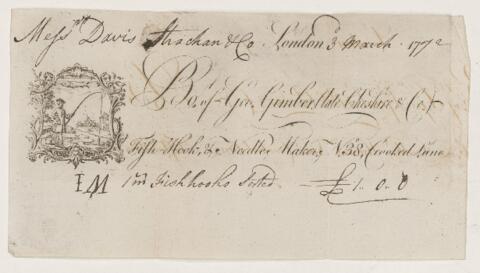 Messrs Davis Strachan & Co. London 3 March 1772
Bo. of Geo. Gimber, late Cheshire & Co.
Fish-Hook, & Needle Makers No. 38, Crooked Lane
IM 1m Fishhooks Sorted £1.0.0